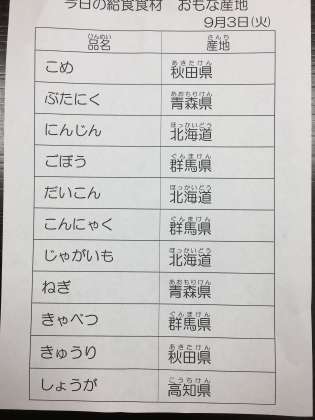 今日の給食食材　おもな産地
9月3日(火)
品名 産地
ひんめい さんち
こめ 秋田県
あきたけん
ぶたにく 青森県
あおもりけん
にんじん 北海道
ほっかいどう
ごぼう 群馬県
ぐんまけん
だいこん 北海道
ほっかいどう
こんにゃく 群馬県
ぐんまけん
じゃがいも 北海道
ほっかいどう
ねぎ 青森県
あおもりけん
きゃべつ 群馬県
ぐんまけん
きゅうり 秋田県
あきたけん
しょうが 高知県
こうちけん